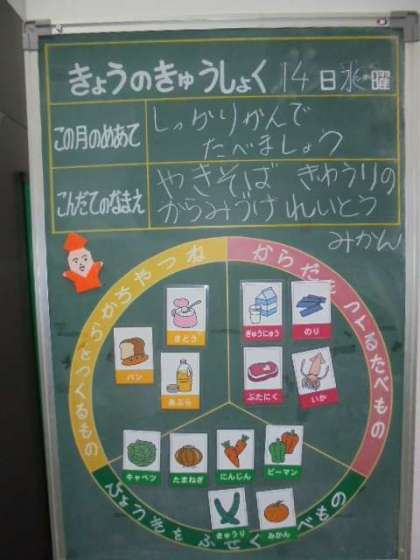 きょうのきゅうしょく 14日 水曜
この月のめあて
しっかりかんで
たべましょう
こんだてのなまえ
やきそば きゅうりの
からみづけ れいとう
みかん
ちからやねつをつくるもの
からだをつくるたべもの
さとう
ぎゅうにゅう
のり
パン
あぶら
ぶたにく
いか
キャベツ
たまねぎ
にんじん
ピーマン
きゅうり
みかん
びょうきをふせぐたべもの